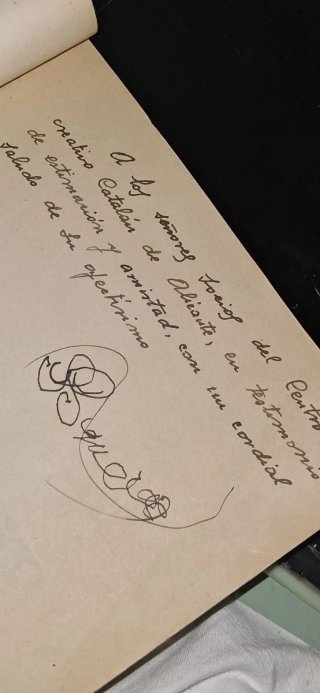 A los señores socios del Centro
creativo Catalán de Alicante, en testimonio
de estimación y amistad, con un cordial
saludo de su afectísimo